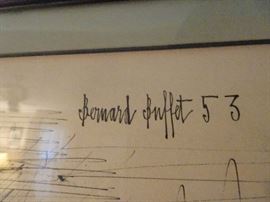 Bernard Buffet 53